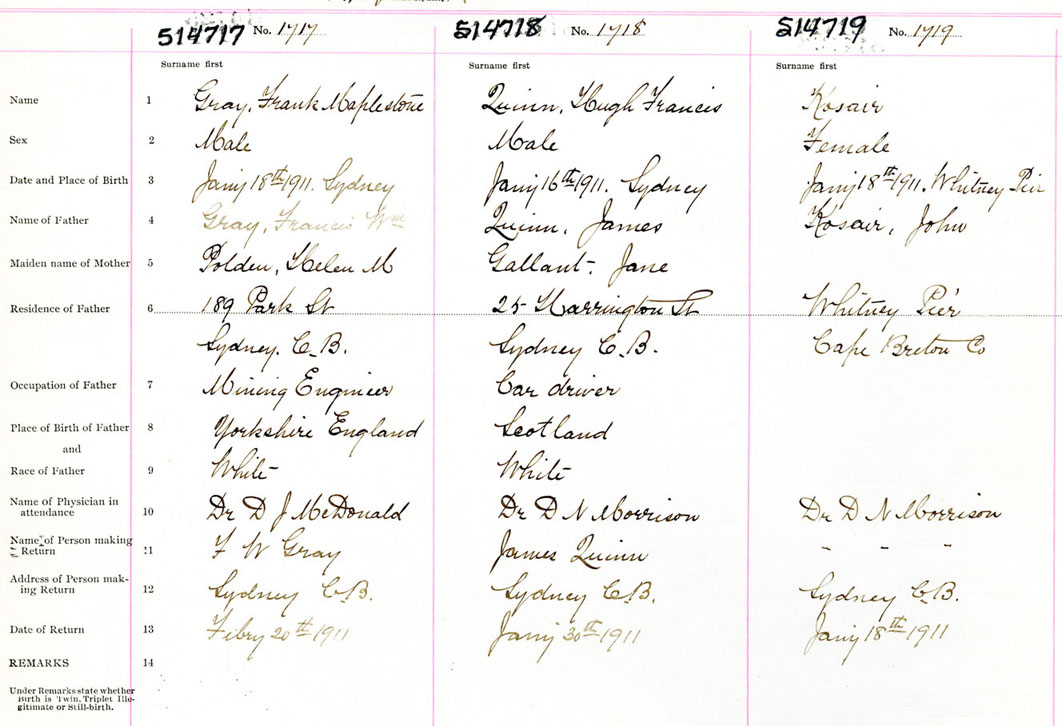 514717 No. 1717 514718 No. 1718 514719 No. 1719
Surname first Surname first Surname first
Name 1 Gray, Frank Maplestone Quinn, Hugh Francis Kosair
Sex 2 Male Male Female
Date and Place of Birth 3 Jany 18th 1911. Sydney Jany 16th 1911. Sydney Jany 18th 1911. Whitney Pier
Name of Father 4 Gray, Francis Wm Quinn, James Kosair, John
Maiden name of Mother 5 Polden, Helen M Gallant, Jane
Residence of Father 6 189 Park St 25 Harrington St Whitney Pier
Sydney. C.B. Sydney C.B. Cape Breton Co
Occupation of Father 7 Mining Engineer Car driver
Place of Birth of Father 8 Yorkshire England Scotland
and
Race of Father 9 White White
Name of Physician in
attendance 10 Dr D J McDonald Dr D N Morrison Dr D N Morrison
Name of Person making
Return 11 F W Gray James Quinn - - -
Address of Person mak-
ing Return 12 Sydney C.B. Sydney C.B. Sydney C.B.
Date of Return 13 Febry 20th 1911 Jany 30th 1911 Jany 18th 1911
REMARKS 14
Under Remarks state whether
Birth is Twin, Triplet Ille-
gitimate or Still-birth.